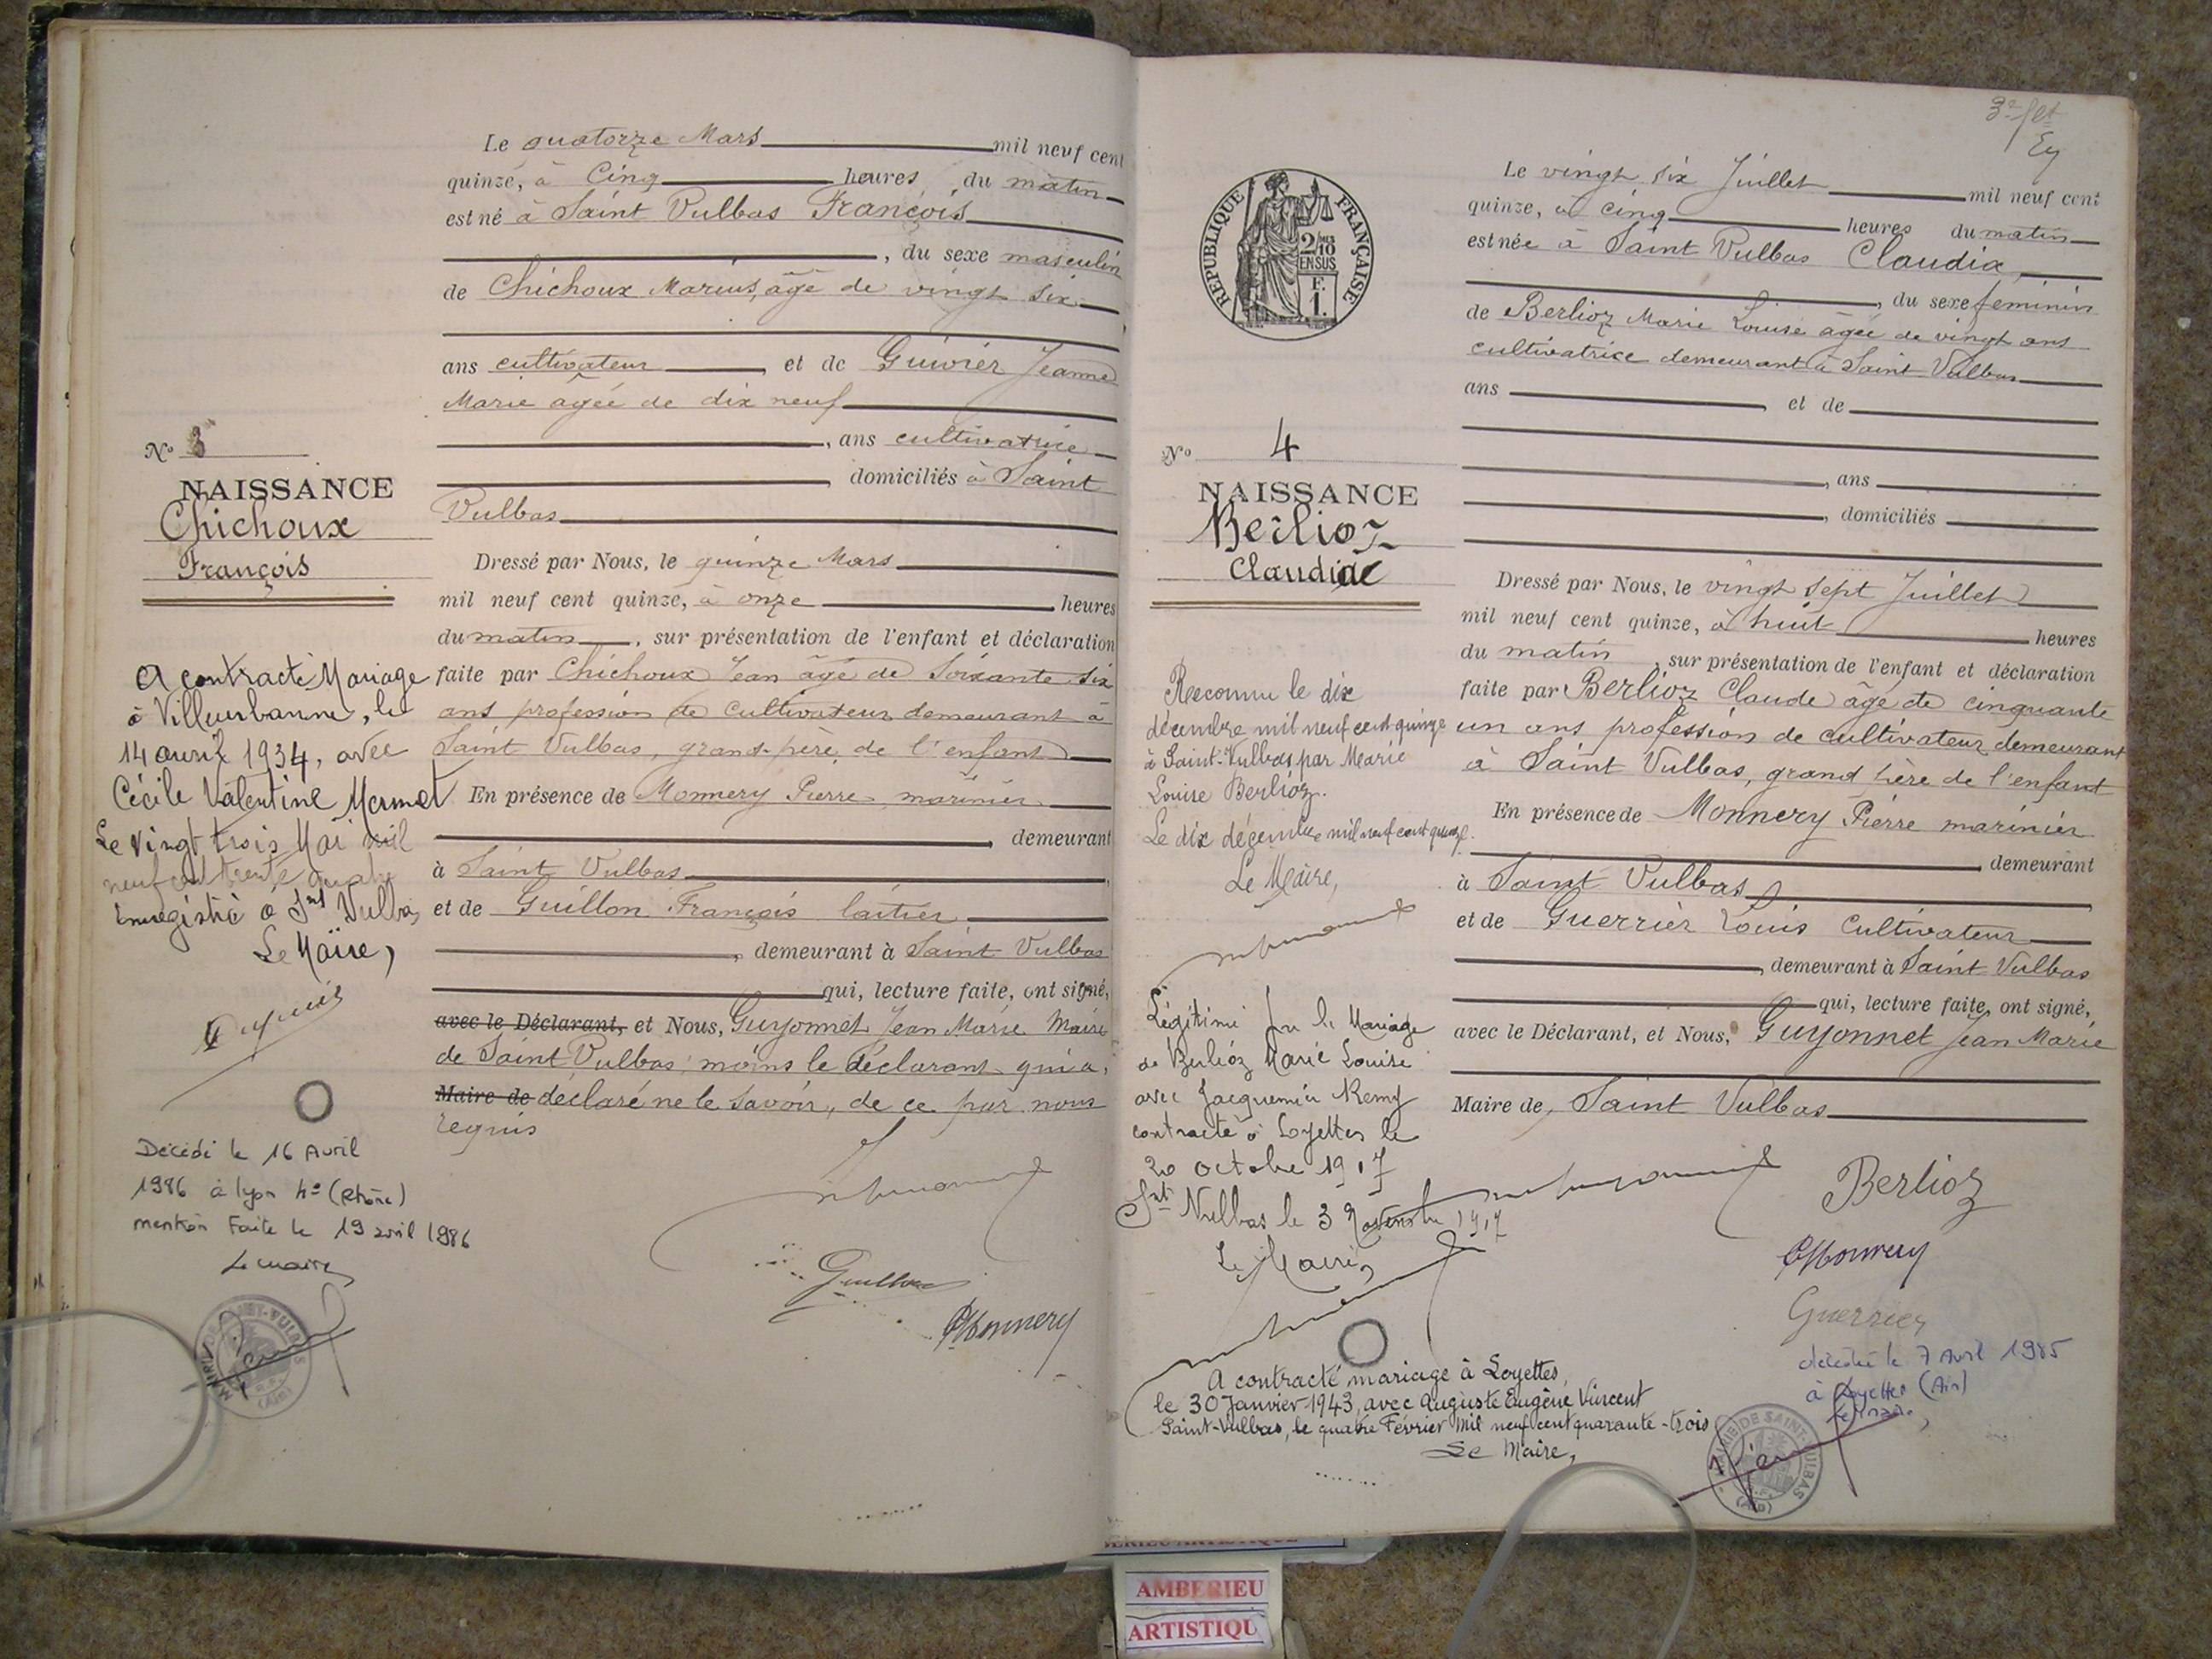 Le quatorze Mars mil neuf cent
quinze, à Cinq heures du matin
est né à Saint Vulbas François
, du sexe masculin
de Chichoux Marius, âgé de vingt six
ans cultivateur, et de Guivier Jeanne
Marie agée de dix neuf
, ans cultivatrice
domiciliés à Saint
Vulbas
Dressé par Nous, le quinze Mars
mil neuf cent quinze, à onze heures
du matin, sur présentation de l'enfant et déclaration
faite par Chichoux Jean âgé de Soixante six
ans profession de cultivateur demeurant à
Saint Vulbas, grand-père de l'enfant
En présence de Monnery Pierre marinier
demeurant
à Saint Vulbas,
et de Guillon François laitier
, demeurant à Saint Vulbas
qui, lecture faite, ont signé,
avec le Déclarant, et Nous, Guyonnet Jean Marie Maire
de Saint Vulbas moins le déclarant qui a,
Maire de déclaré ne le savoir, de ce par nous
requis
Guillon
PMonnery
No 3
NAISSANCE
Chichoux
François
A contracté Mariage
à Villeurbanne, le
14 avril 1934, avec
Cécile Valentine Mermet
Le vingt trois Mai mil
neuf cent trente quatre
enregistré à Snt Vulbas
Le Maire,
Décédé le 16 Avril
1986 à Lyon 4e (Rhône)
mention faite le 19 avril 1986
Le maire
3e flet
Ey
REPUBLIQUE FRANÇAISE
2/10 MES
EN SUS
F.
1.
Le vingt six Juillet mil neuf cent
quinze, à cinq heures du matin
est née à Saint Vulbas Claudia
, du sexe féminin
de Berlioz Marie Louise âgée de vingt ans
cultivatrice demeurant à Saint Vulbas
ans , et de
, ans
, domiciliés
Dressé par Nous, le vingt sept Juillet
mil neuf cent quinze, à huit heures
du matin, sur présentation de l'enfant et déclaration
faite par Berlioz Claude âgé de cinquante
un ans profession de cultivateur demeurant
à Saint Vulbas, grand père de l'enfant
En présence de Monnery Pierre marinier
demeurant
à Saint Vulbas,
et de Guerrier Louis Cultivateur
, demeurant à Saint Vulbas
qui, lecture faite, ont signé,
avec le Déclarant, et Nous, Guyonnet Jean Marie
Maire de Saint Vulbas
Berlioz
PMonnery
Guerrier
décédée le 7 Avril 1985
à Loyettes (Ain)
Le maire,
MAIRIE DE SAINT-VULBAS
(AIN)
No 4
NAISSANCE
Berlioz
Claudia
Reconnu le dix
décembre mil neuf cent quinze
à Saint-Vulbas par Marie
Louise Berlioz.
Le dix décembre mil neuf cent quinze.
Le Maire,
Légitimé par le Mariage
de Berlioz Marie Louise
avec Jacquemier Remy
contracté à Loyettes le
20 octobre 1917
Snt Vulbas le 3 Novembre 1917
Le Maire,
A contracté mariage à Loyettes,
le 30 Janvier 1943, avec Auguste Eugène Vincent
Saint-Vulbas, le quatre Février mil neuf cent quarante-trois
Le Maire,
AMBERIEU
ARTISTIQU